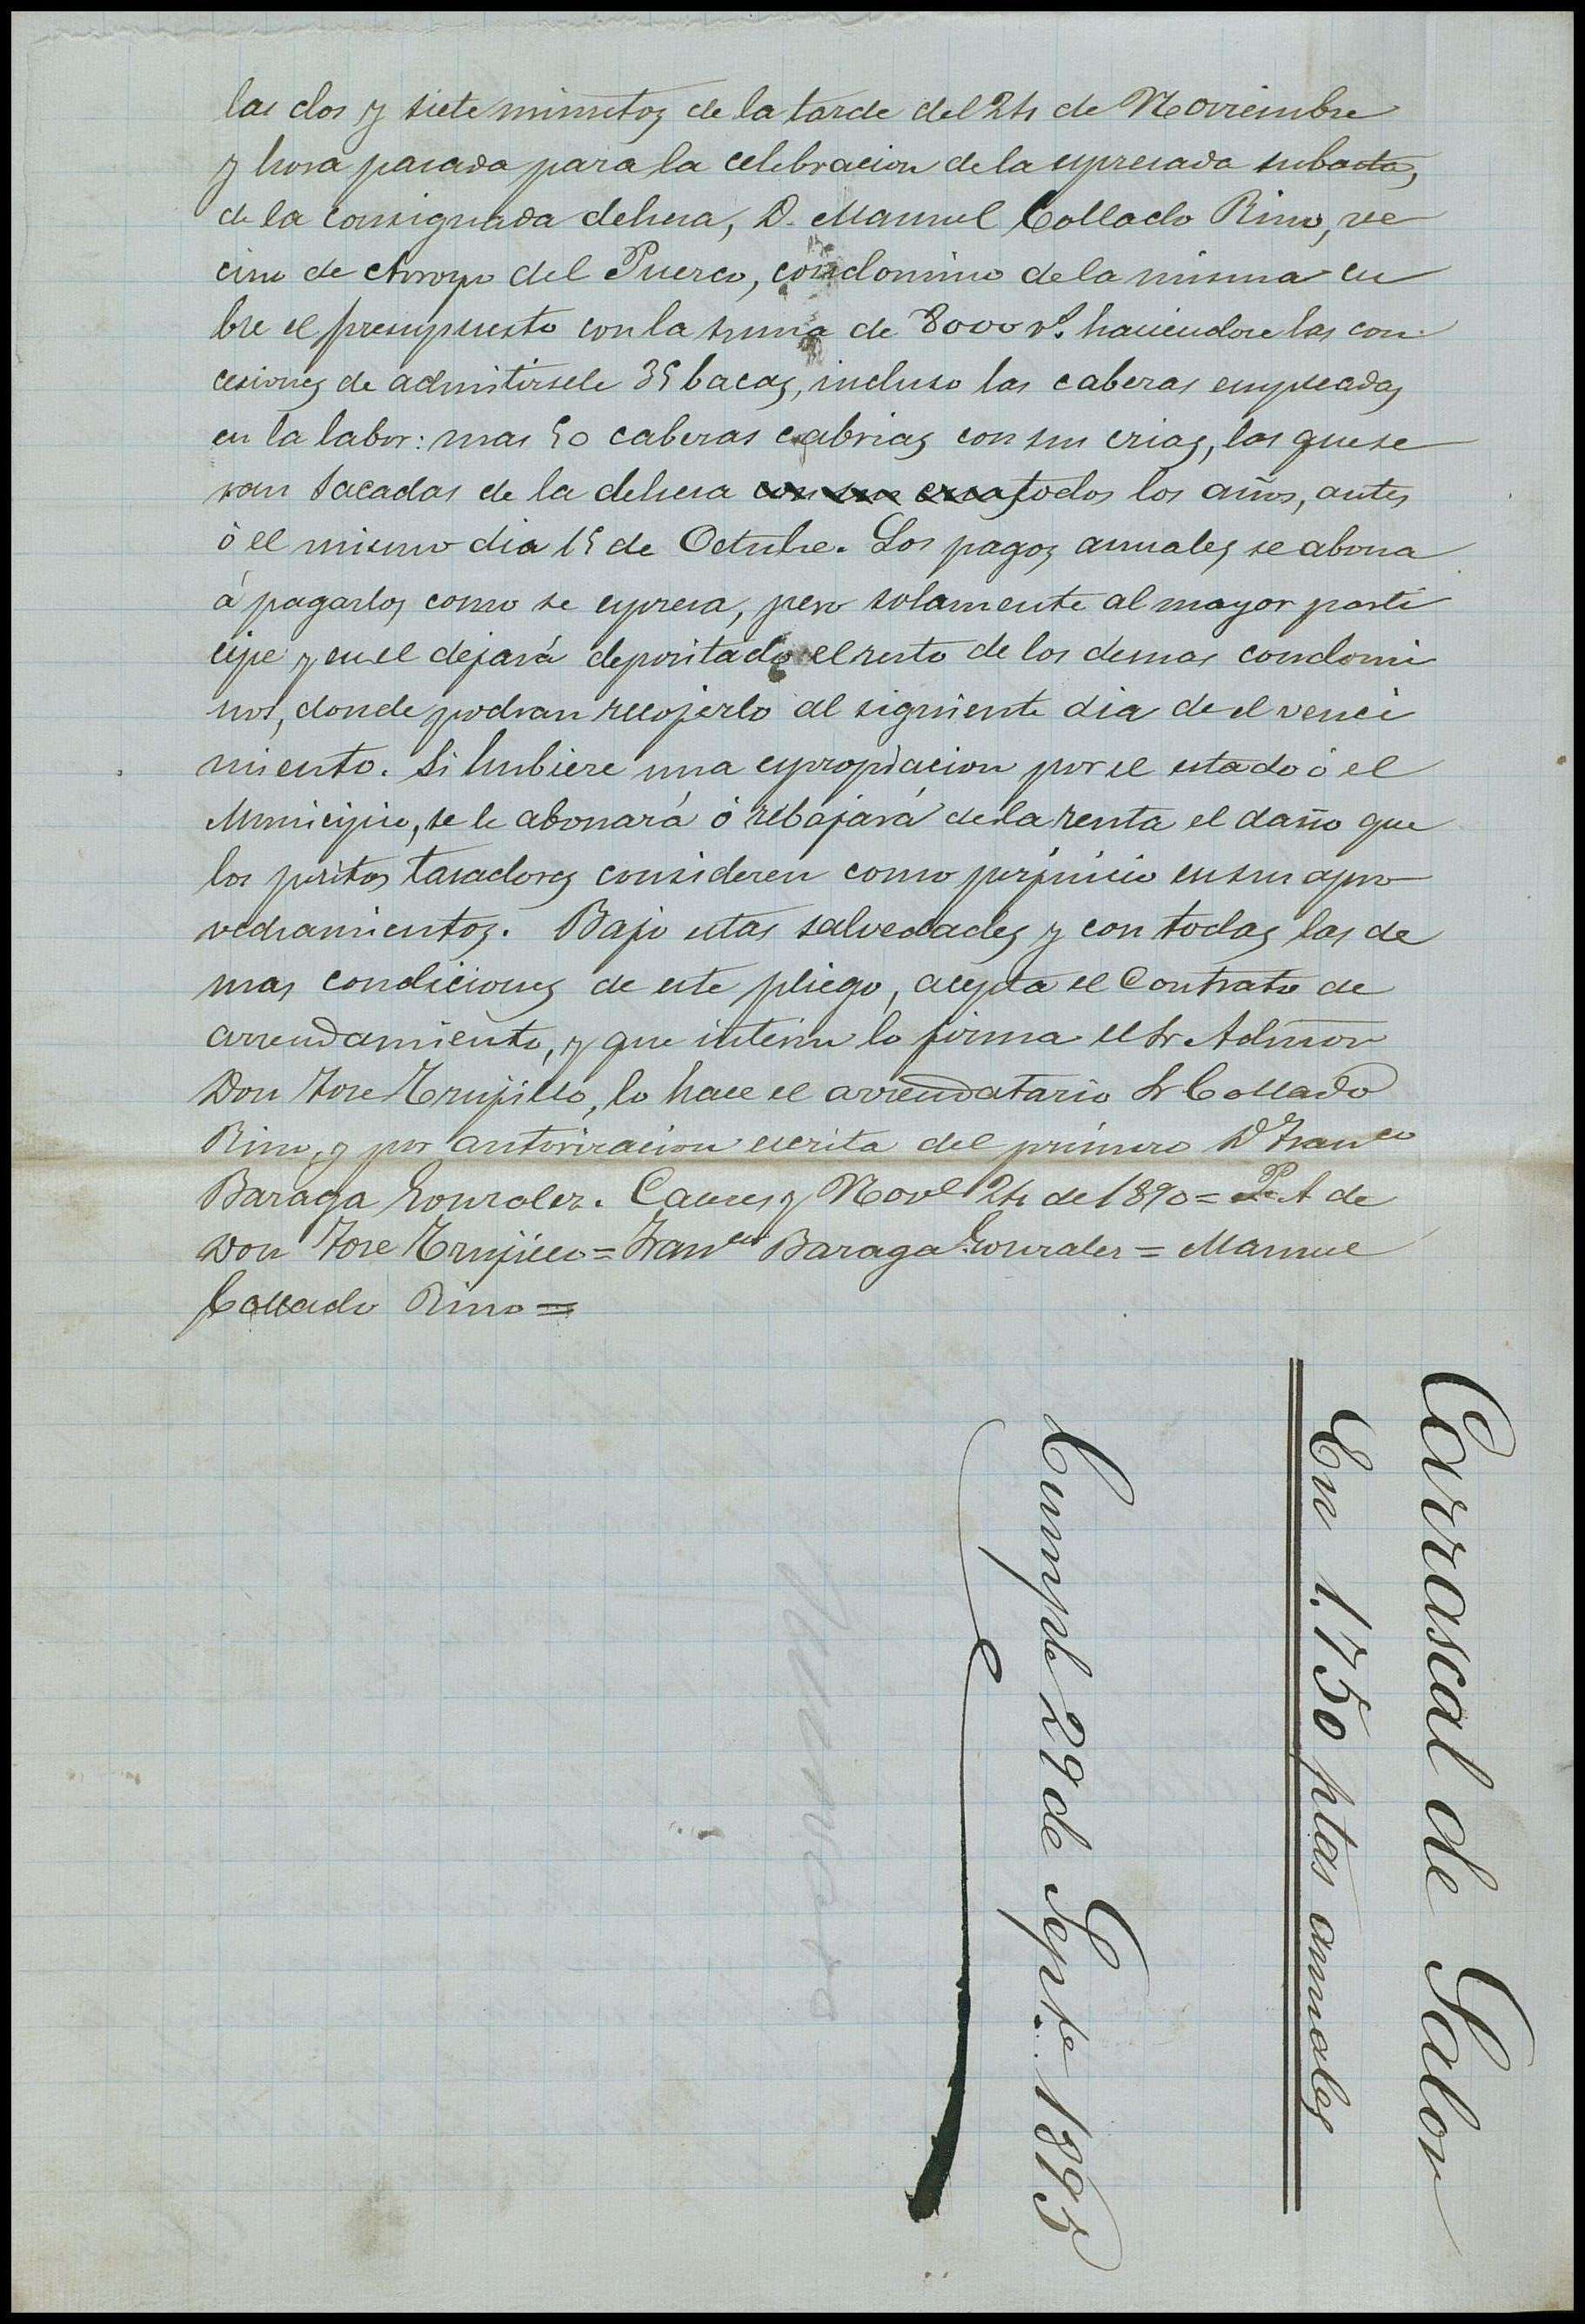 las dos y siete minutos de la tarde del 24 de Noviembre
y hora pasada para la celebracion de la espresada subasta,
de la consignada dehesa, D. Manuel Collado Rino, ve
cino de Arroyo del Puerco, condomino de la misma cu
bre el presupuesto con la suma de 8000 rs. haciendose las con
cesiones de admitirsele 35 bacas, incluso las caberas empleadas
en la labor: mas 50 caberas cabrias con sus crias, las que se
ran sacadas de la dehesa con sus crias todos los años, antes
ó el mismo dia 15 de Octubre. Los pagos anuales se abona
á pagarlos como se espresa, pero solamente al mayor parti
cipe y en el dejará depositado el resto de los demas condomi
nos, donde podran recojerlo al siguiente dia de el venci
miento. Si hubiere una espropiacion por el estado ó el
Municipio, se le abonará ó rebajará de la renta el daño que
los peritos tasadores consideren como perjuicio en sus apro
vechamientos. Bajo estas salvedades y con todas las de
mas condiciones de este pliego, acepta el Contrato de
arrendamiento, y que interin lo firma el Sr. Admor
Don Jose Trujillo, lo hace el arrendatario Sr Collado
Rino, y por autorizacion escrita del primero Dn Franco
Baraga Gonzalez. Caceres y Nove 24 de 1890 = P. A de
Don Jose Trujillo = Franco Baraga Gonzalez = Manuel
Collado Rino =
Carrascal de Salor
En 1.750 ptas anuales
Cumple 29 de Septe 1895